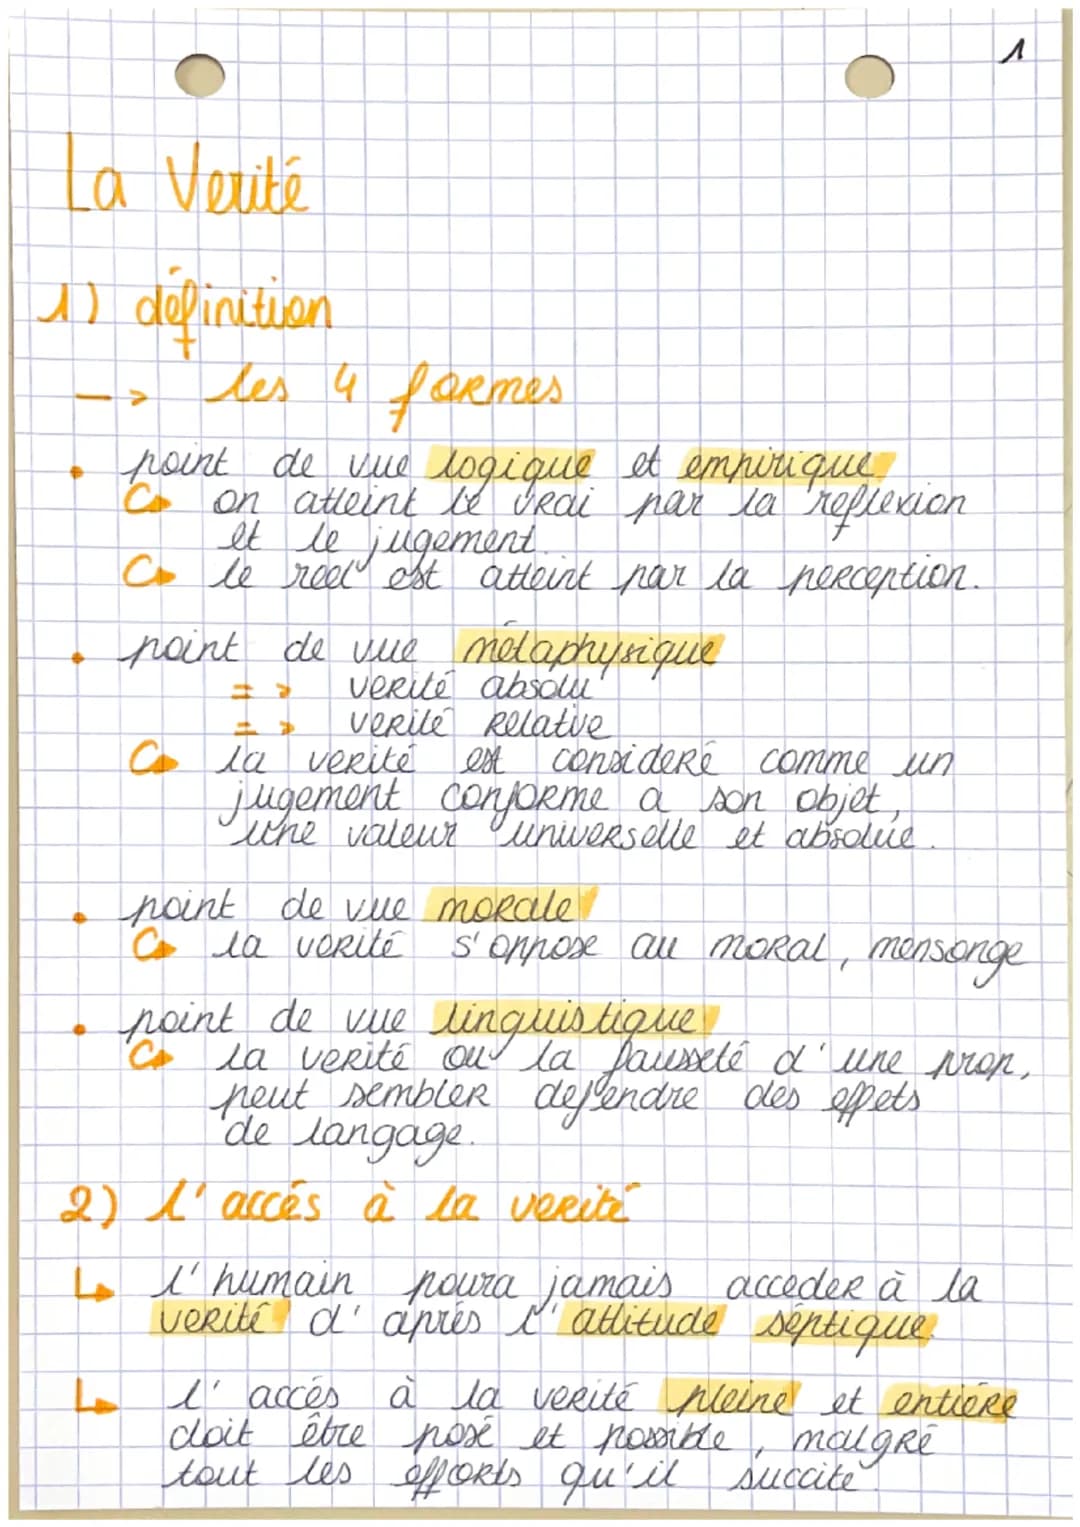 1
La Verité
1) définition
-> les 4 formes
• point de vue logique et empirique.
on atteint le vrai par la reflexion
et le jugement.
le reél est atteint par la perception.
• point de vue métaphysique
=> verité absolu
=> verité relative
la verité est consideré comme un
jugement conforme a son objet,
une valeur universelle et absolue.
• point de vue morale
la verité s'oppose au moral, mensonge
• point de vue linguistique
la verité ou la fausseté d'une prop,
peut sembler dependre des effets
de langage.
2) l'accés à la verité
l'humain poura jamais acceder à la
verité d'aprés l'attitude séptique.
l'accés à la verité pleine et entiére
doit être posé et possible, malgré
tout les efforts qu'il succite.